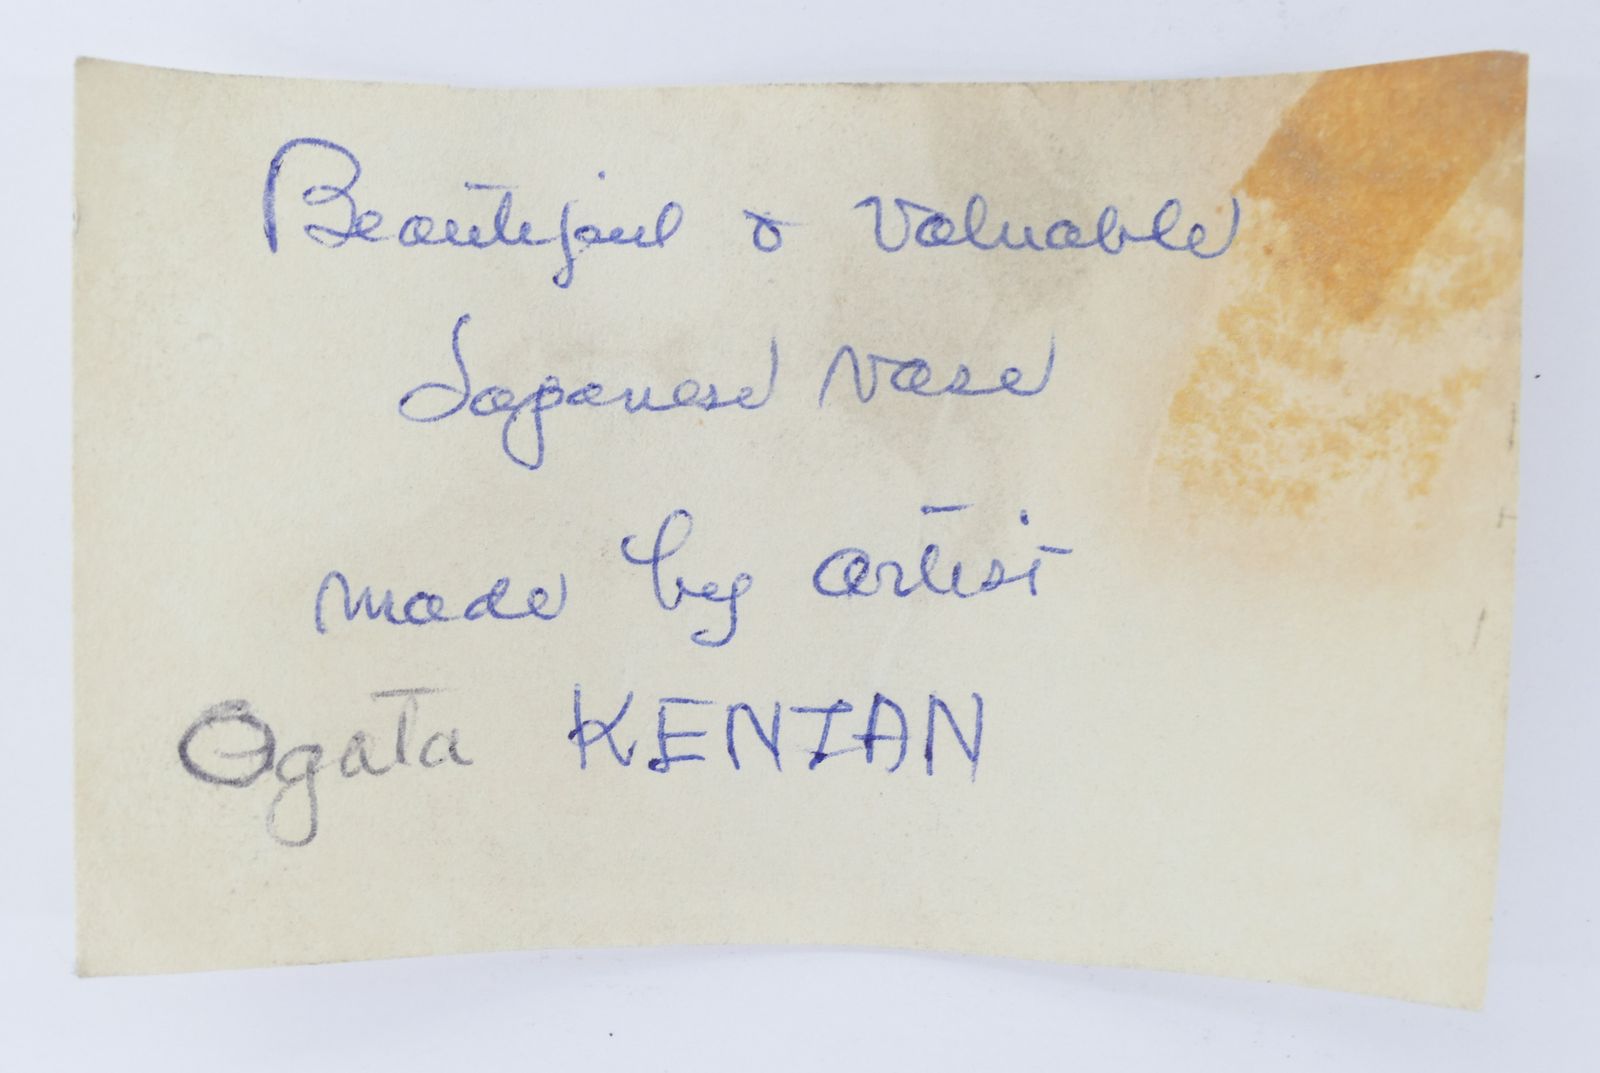 Beautiful & Valuable
Japanese Vase
made by artist
Ogata KENZAN